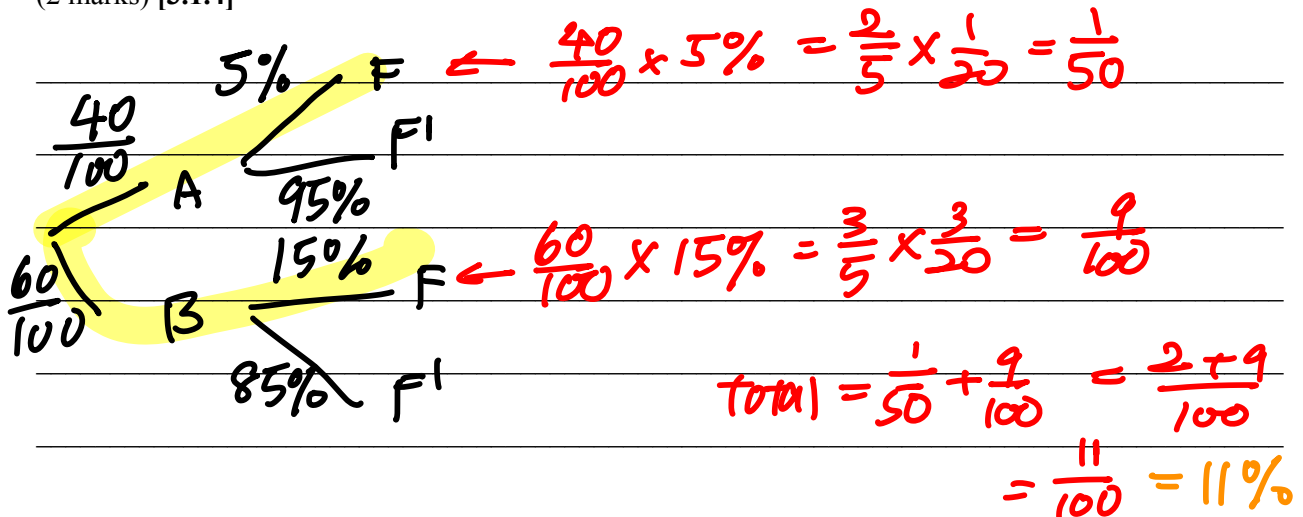 (2 marks) [3.1.4]
5% F ← 40/100 × 5% = 2/5 × 1/20 = 1/50
40/100 A F'
95%
60/100 B 15% F ← 60/100 × 15% = 3/5 × 3/20 = 9/100
85% F'
total = 1/50 + 9/100 = 2+9/100
= 11/100 = 11%